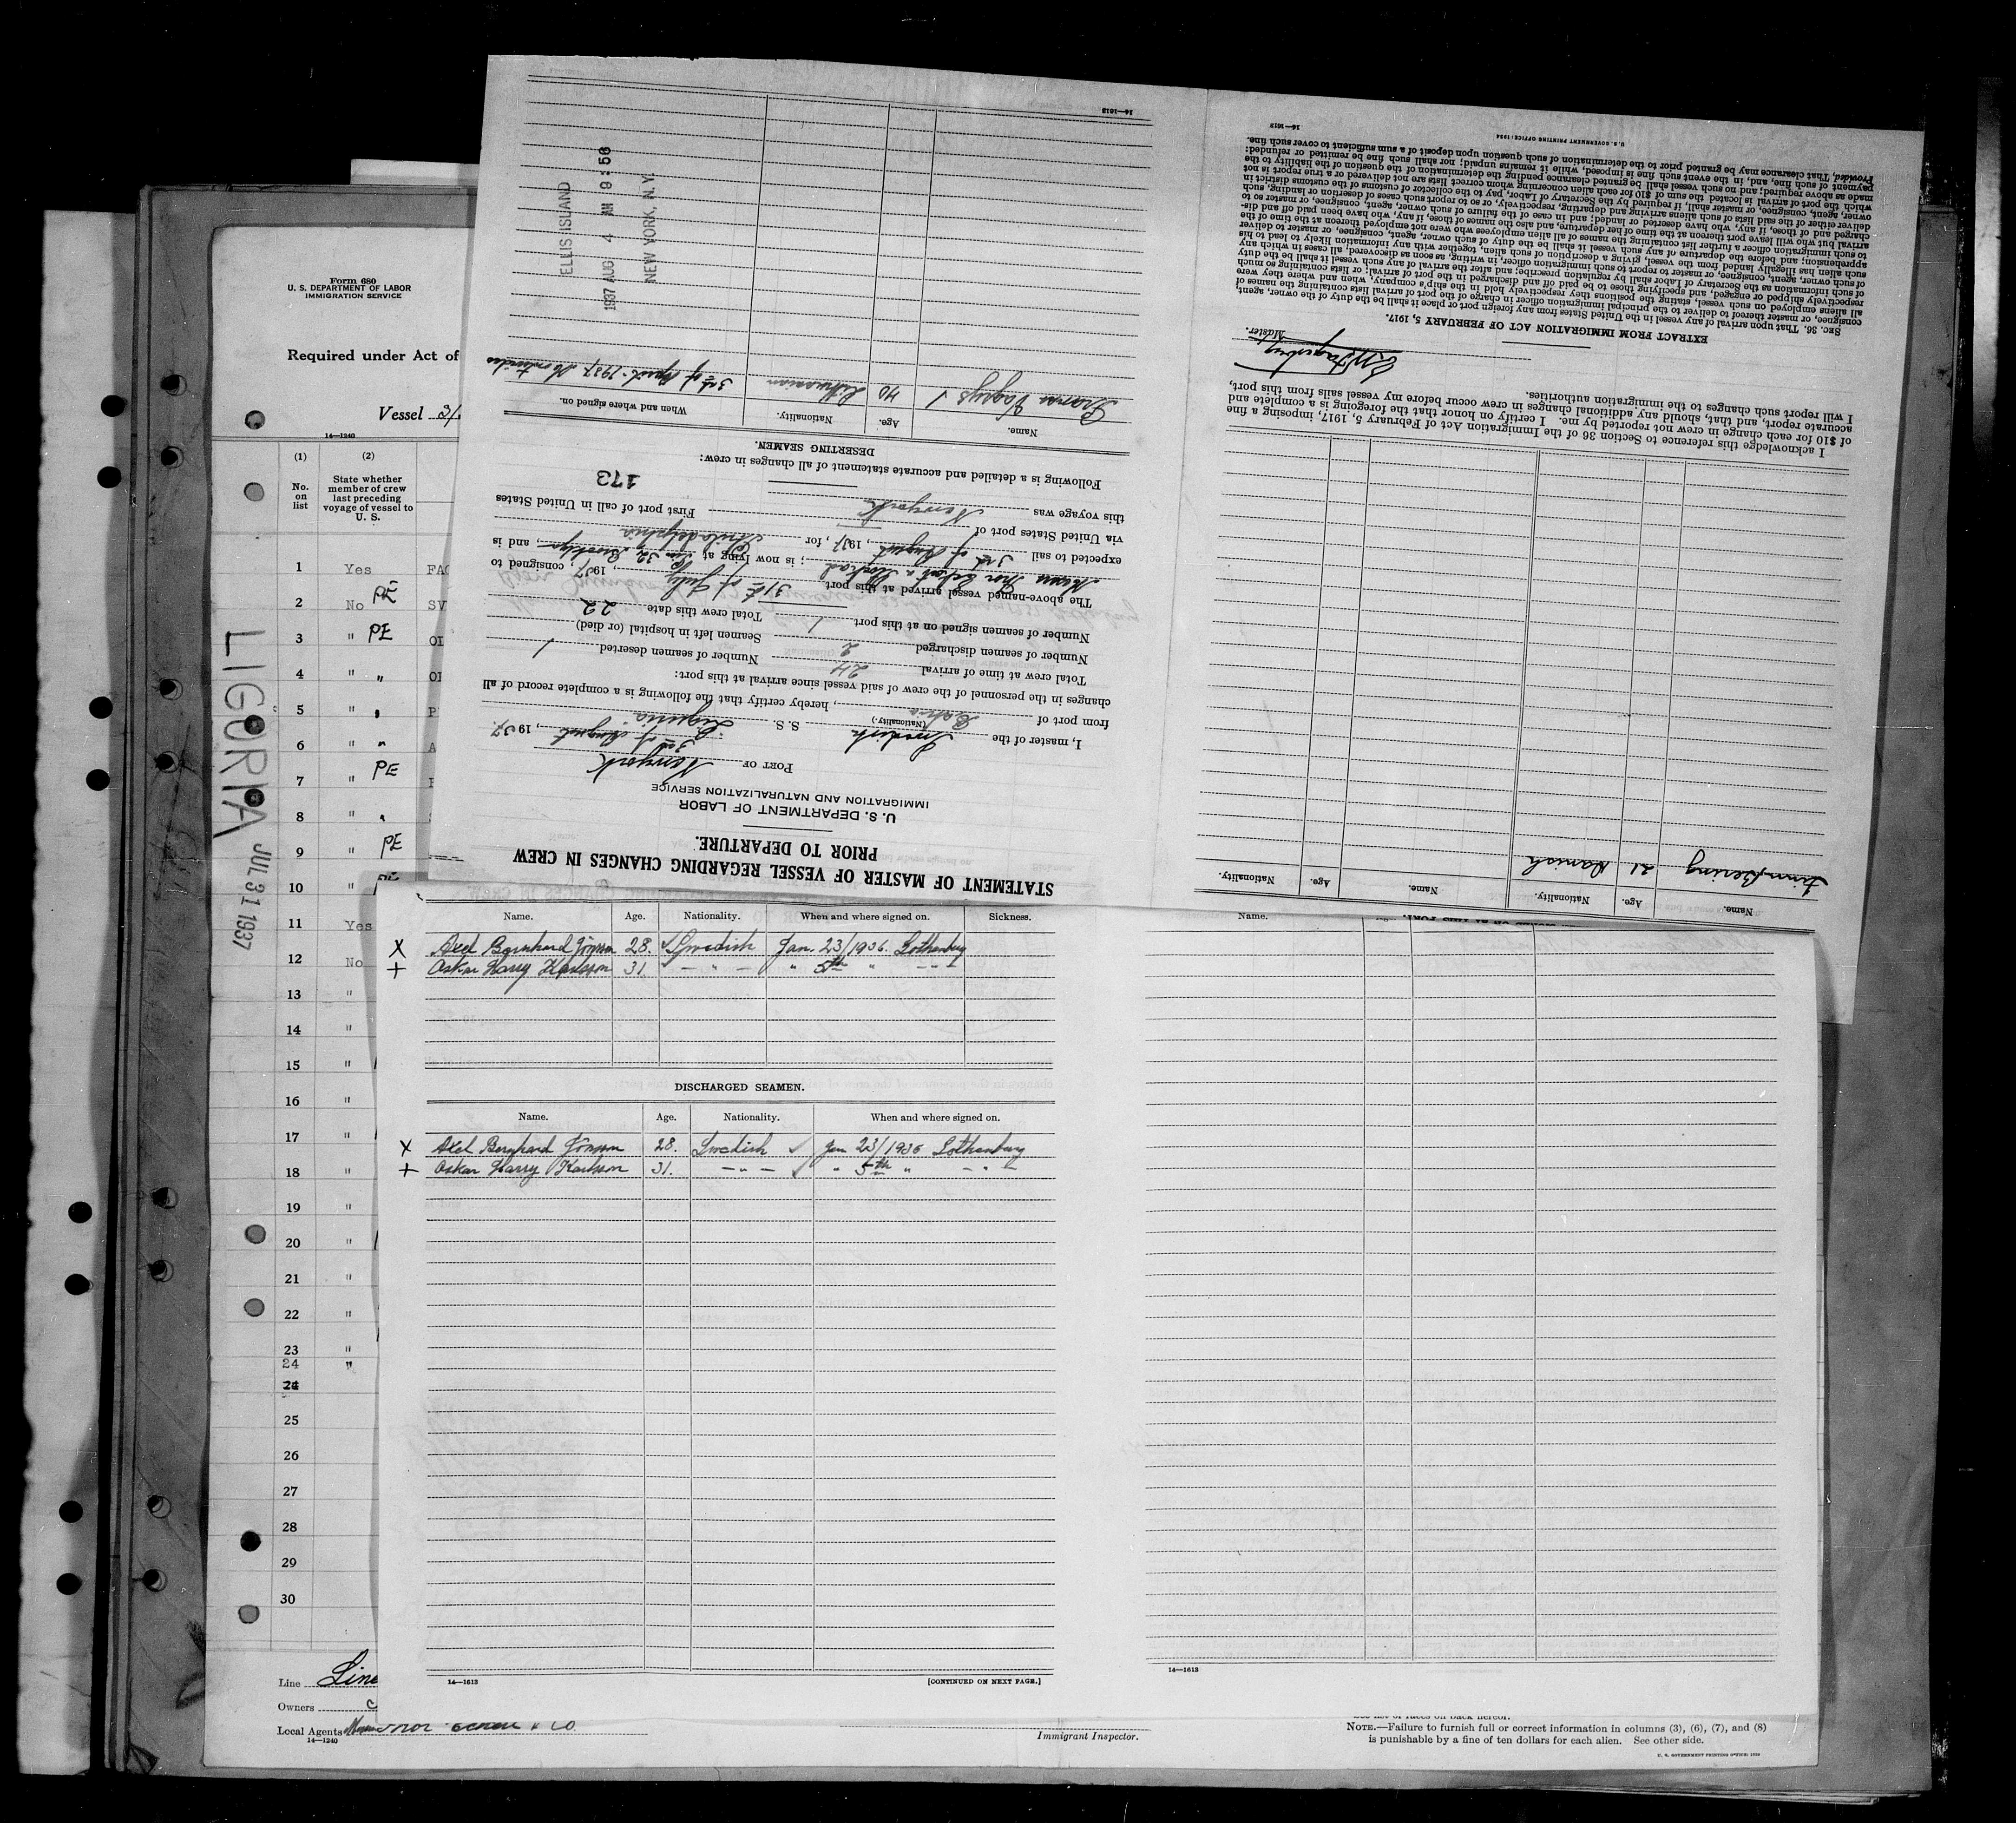 Form 680
U. S. DEPARTMENT OF LABOR
IMMIGRATION SERVICE
Required under Act of
Vessel
14—1240
(1) (2)
No. on list
State whether member of crew last preceding voyage of vessel to U. S.
1 Yes FAG
2 No PE SV
3 " PE OL
4 " "
5 " P
6 " " A
7 " PE
8 "
9 " PE
10 "
11 Yes
12 No
13 "
14 "
15 "
16 "
17 "
18 "
19 "
20 "
21 "
22 "
23 "
24 "
24
25
26
27
28
29
30
LIGURIA JUL 31 1937
Line
Owners
Local Agents
14—1240
STATEMENT OF MASTER OF VESSEL REGARDING CHANGES IN CREW
PRIOR TO DEPARTURE.
U. S. DEPARTMENT OF LABOR
IMMIGRATION AND NATURALIZATION SERVICE
PORT OF Newyork
3rd of August, 1937.
I, master of the Swedish S. S. Liguria
(Nationality.)
from port of , hereby certify that the following is a complete record of all
changes in the personnel of the crew of said vessel since arrival at this port:
Total crew at time of arrival 24 Number of seamen deserted 1
Number of seamen discharged 2 Seamen left in hospital (or died)
Number of seamen signed on at this port 1 Total crew this date 22
The above-named vessel arrived at this port 31st of July, 1937, consigned to
; is now lying at Pier 32, Brooklyn, and is
expected to sail 3rd of August, 1937, for Philadelphia
via United States port of
this voyage was Newyork First port of call in United States
173
Following is a detailed and accurate statement of all changes in crew:
DESERTING SEAMEN.
Name. Age. Nationality. When and where signed on.
40 Lithuanian 3rd of April-1937
ELLIS ISLAND
1937 AUG 4 AM 9:56
NEW YORK, N. Y.
14—1613
Name. Age. Nationality. Name. Age. Nationality.
21 Danish
I acknowledge this reference to Section 36 of the Immigration Act of February 5, 1917, imposing a fine
of $10 for each change in crew not reported by me. I certify on honor that the foregoing is a complete and
accurate report, and that, should any additional changes in crew occur before my vessel sails from this port,
I will report such changes to the immigration authorities.
Master.
EXTRACT FROM IMMIGRATION ACT OF FEBRUARY 5, 1917.
SEC. 36. That upon arrival of any vessel in the United States from any foreign port or place it shall be the duty of the owner, agent,
consignee, or master thereof to deliver to the principal immigration officer in charge of the port of arrival lists containing the names of
all aliens employed on such vessel, stating the positions they respectively hold in the ship's company, when and where they were
respectively shipped or engaged, and specifying those to be paid off and discharged in the port of arrival; or lists containing so much
of such information as the Secretary of Labor shall by regulation prescribe; and after the arrival of any such vessel it shall be the duty
of such owner, agent, consignee, or master to report to such immigration officer, in writing, as soon as discovered, all cases in which any
such alien has illegally landed from the vessel, giving a description of such alien, together with any information likely to lead to his
apprehension; and before the departure of any such vessel it shall be the duty of such owner, agent, consignee, or master to deliver
to such immigration officer a further list containing the names of all alien employees who were not employed thereon at the time of the
arrival but who will leave port thereon at the time of her departure, and also the names of those, if any, who have been paid off and dis-
charged and of those, if any, who have deserted or landed; and in case of the failure of such owner, agent, consignee, or master so to
deliver either of the said lists of such aliens arriving and departing, respectively, or so to report such cases of desertion or landing, such
owner, agent, consignee, or master shall, if required by the Secretary of Labor, pay to the collector of customs of the customs district in
which the port of arrival is located the sum of $10 for each alien concerning whom correct lists are not delivered or a true report is not
made as above required; and no such vessel shall be granted clearance pending the determination of the question of the liability to the
payment of such fine, and, in the event such fine is imposed, while it remains unpaid; nor shall such fine be remitted or refunded:
Provided, That clearance may be granted prior to the determination of such question upon deposit of a sum sufficient to cover such fine.
U. S. GOVERNMENT PRINTING OFFICE: 1934
14—1613
Name. Age. Nationality. When and where signed on. Sickness.
X Axel Bernhard Jönsson 28. Swedish Jan. 23/1936. Gothenburg
+ Oskar Harry Karlsson 31. — " — " 5th " — " —
DISCHARGED SEAMEN.
Name. Age. Nationality. When and where signed on.
X Axel Bernhard Jönsson 28. Swedish Jan 23/1936 Gothenburg
+ Oskar Harry Karlsson 31. — " — " 5th " — " —
14—1613 [CONTINUED ON NEXT PAGE.]
Name.
14—1613
Immigrant Inspector.
NOTE.—Failure to furnish full or correct information in columns (3), (6), (7), and (8)
is punishable by a fine of ten dollars for each alien. See other side.